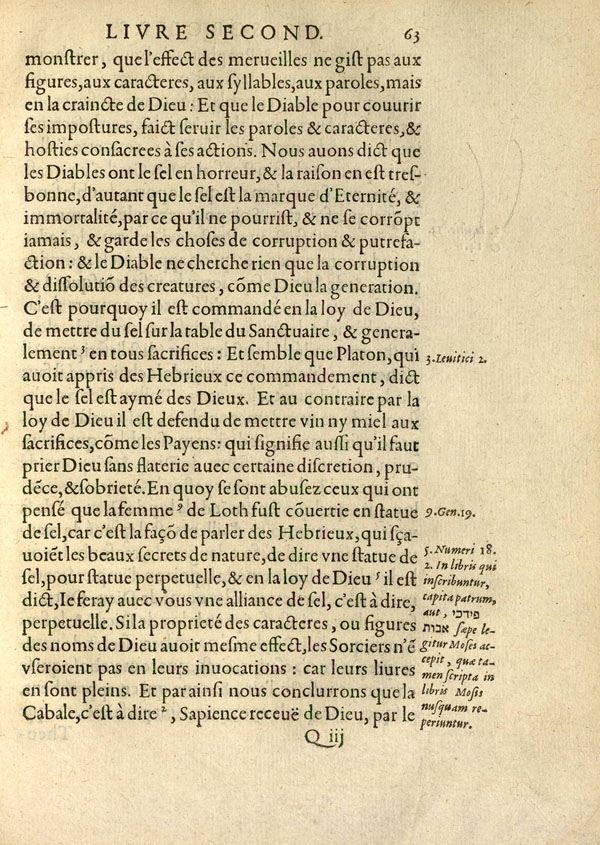 LIVRE SECOND. 63
monſtrer, que l'effect des merueilles ne giſt pas aux
figures, aux caracteres, aux ſyllables, aux paroles, mais
en la craincte de Dieu : Et que le Diable pour couurir
ſes impoſtures, faict ſeruir les paroles & caracteres, &
hoſties conſacrees à ſes actions. Nous auons dict que
les Diables ont le ſel en horreur, & la raiſon en eſt treſ-
bonne, d'autant que le ſel eſt la marque d'Eternité, &
immortalité, par ce qu'il ne pourriſt, & ne ſe corrõpt
iamais, & garde les choſes de corruption & putrefa-
ction : & le Diable ne cherche rien que la corruption
& diſſolutiõ des creatures, cõme Dieu la generation.
C'eſt pourquoy il eſt commandé en la loy de Dieu,
de mettre du ſel ſur la table du Sanctuaire, & genera-
lement ³ en tous ſacrifices : Et ſemble que Platon, qui
auoit appris des Hebrieux ce commandement, dict
que le ſel eſt aymé des Dieux. Et au contraire par la
loy de Dieu il eſt defendu de mettre vin ny miel aux
ſacrifices, cõme les Payens : qui ſignifie auſſi qu'il faut
prier Dieu ſans flaterie auec certaine diſcretion, pru-
dẽce, & ſobrieté. En quoy ſe ſont abuſez ceux qui ont
penſé que la femme ⁹ de Loth fuſt cõuertie en ſtatue
de ſel, car c'eſt la façõ de parler des Hebrieux, qui ſça-
uoiẽt les beaux ſecrets de nature, de dire vne ſtatue de
ſel, pour ſtatue perpetuelle, & en la loy de Dieu ⁵ il eſt
dict, Ie feray auec vous vne alliance de ſel, c'eſt à dire,
perpetuelle. Si la proprieté des caracteres, ou figures
des noms de Dieu auoit meſme effect, les Sorciers n'ẽ
vſeroient pas en leurs inuocations : car leurs liures
en ſont pleins. Et par ainſi nous conclurrons que la
Cabale, c'eſt à dire ², Sapience receuë de Dieu, par le
Q iij
3. Leuitici 2.
9. Gen. 19.
5. Numeri 18.
2. In libris qui
inſcribuntur,
capita patrum,
aut, פירכי
אבות ſæpe le-
gitur Moſes ac-
cepit, quæ ta-
men ſcripta in
libris Moſis
nuſquam re-
periuntur.